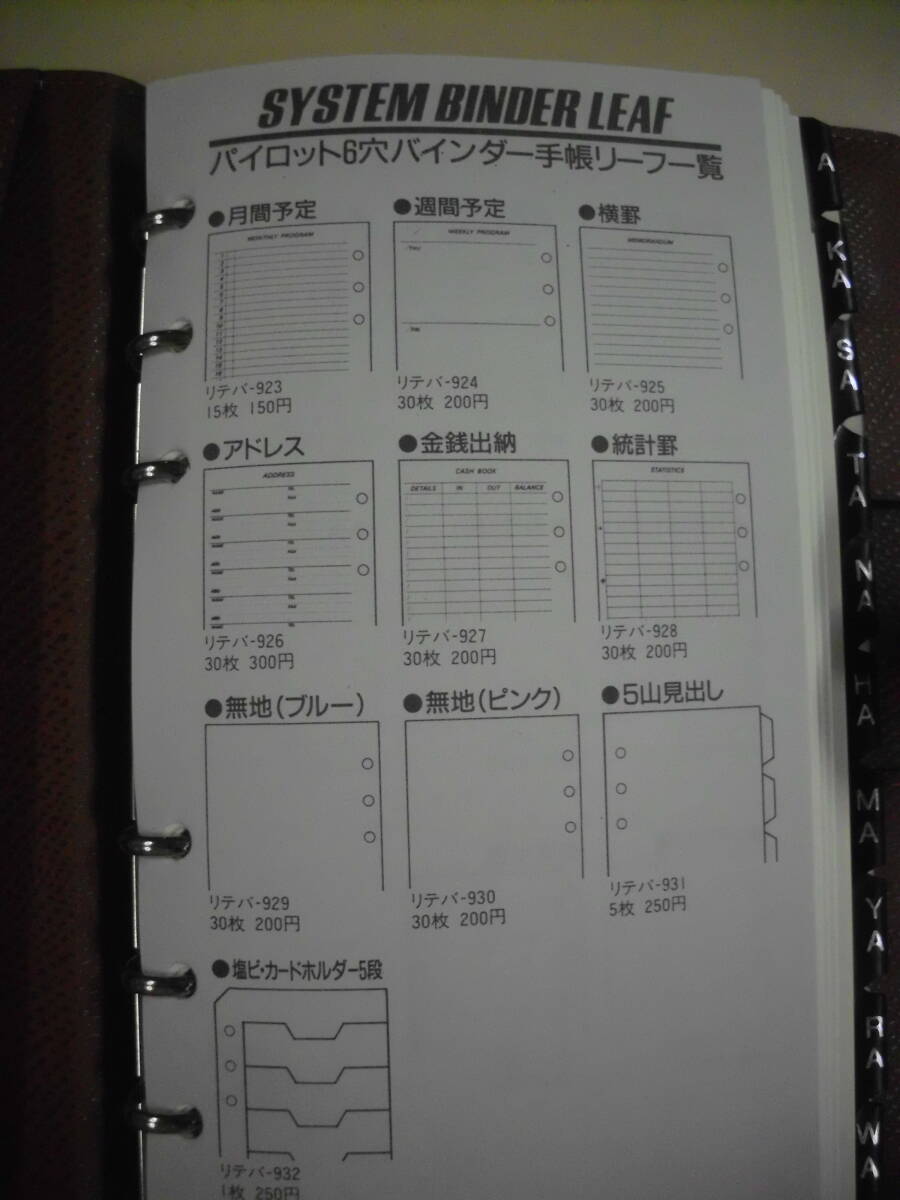 SYSTEM BINDER LEAF
パイロット6穴バインダー手帳リーフ一覧
●月間予定
●週間予定
●横罫
MONTHLY PROGRAM
WEEKLY PROGRAM
MEMORANDUM
リテバ-923
15枚 150円
リテバ-924
30枚 200円
リテバ-925
30枚 200円
●アドレス
●金銭出納
●統計罫
ADDRESS
CASH BOOK
STATISTICS
DETAILS IN OUT BALANCE
リテバ-926
30枚 300円
リテバ-927
30枚 200円
リテバ-928
30枚 200円
●無地(ブルー)
●無地(ピンク)
●5山見出し
リテバ-929
30枚 200円
リテバ-930
30枚 200円
リテバ-931
5枚 250円
●塩ビ・カードホルダー5段
リテバ-932
1枚 250円
A
KA
SA
TA
NA
HA
MA
YA
RA
WA